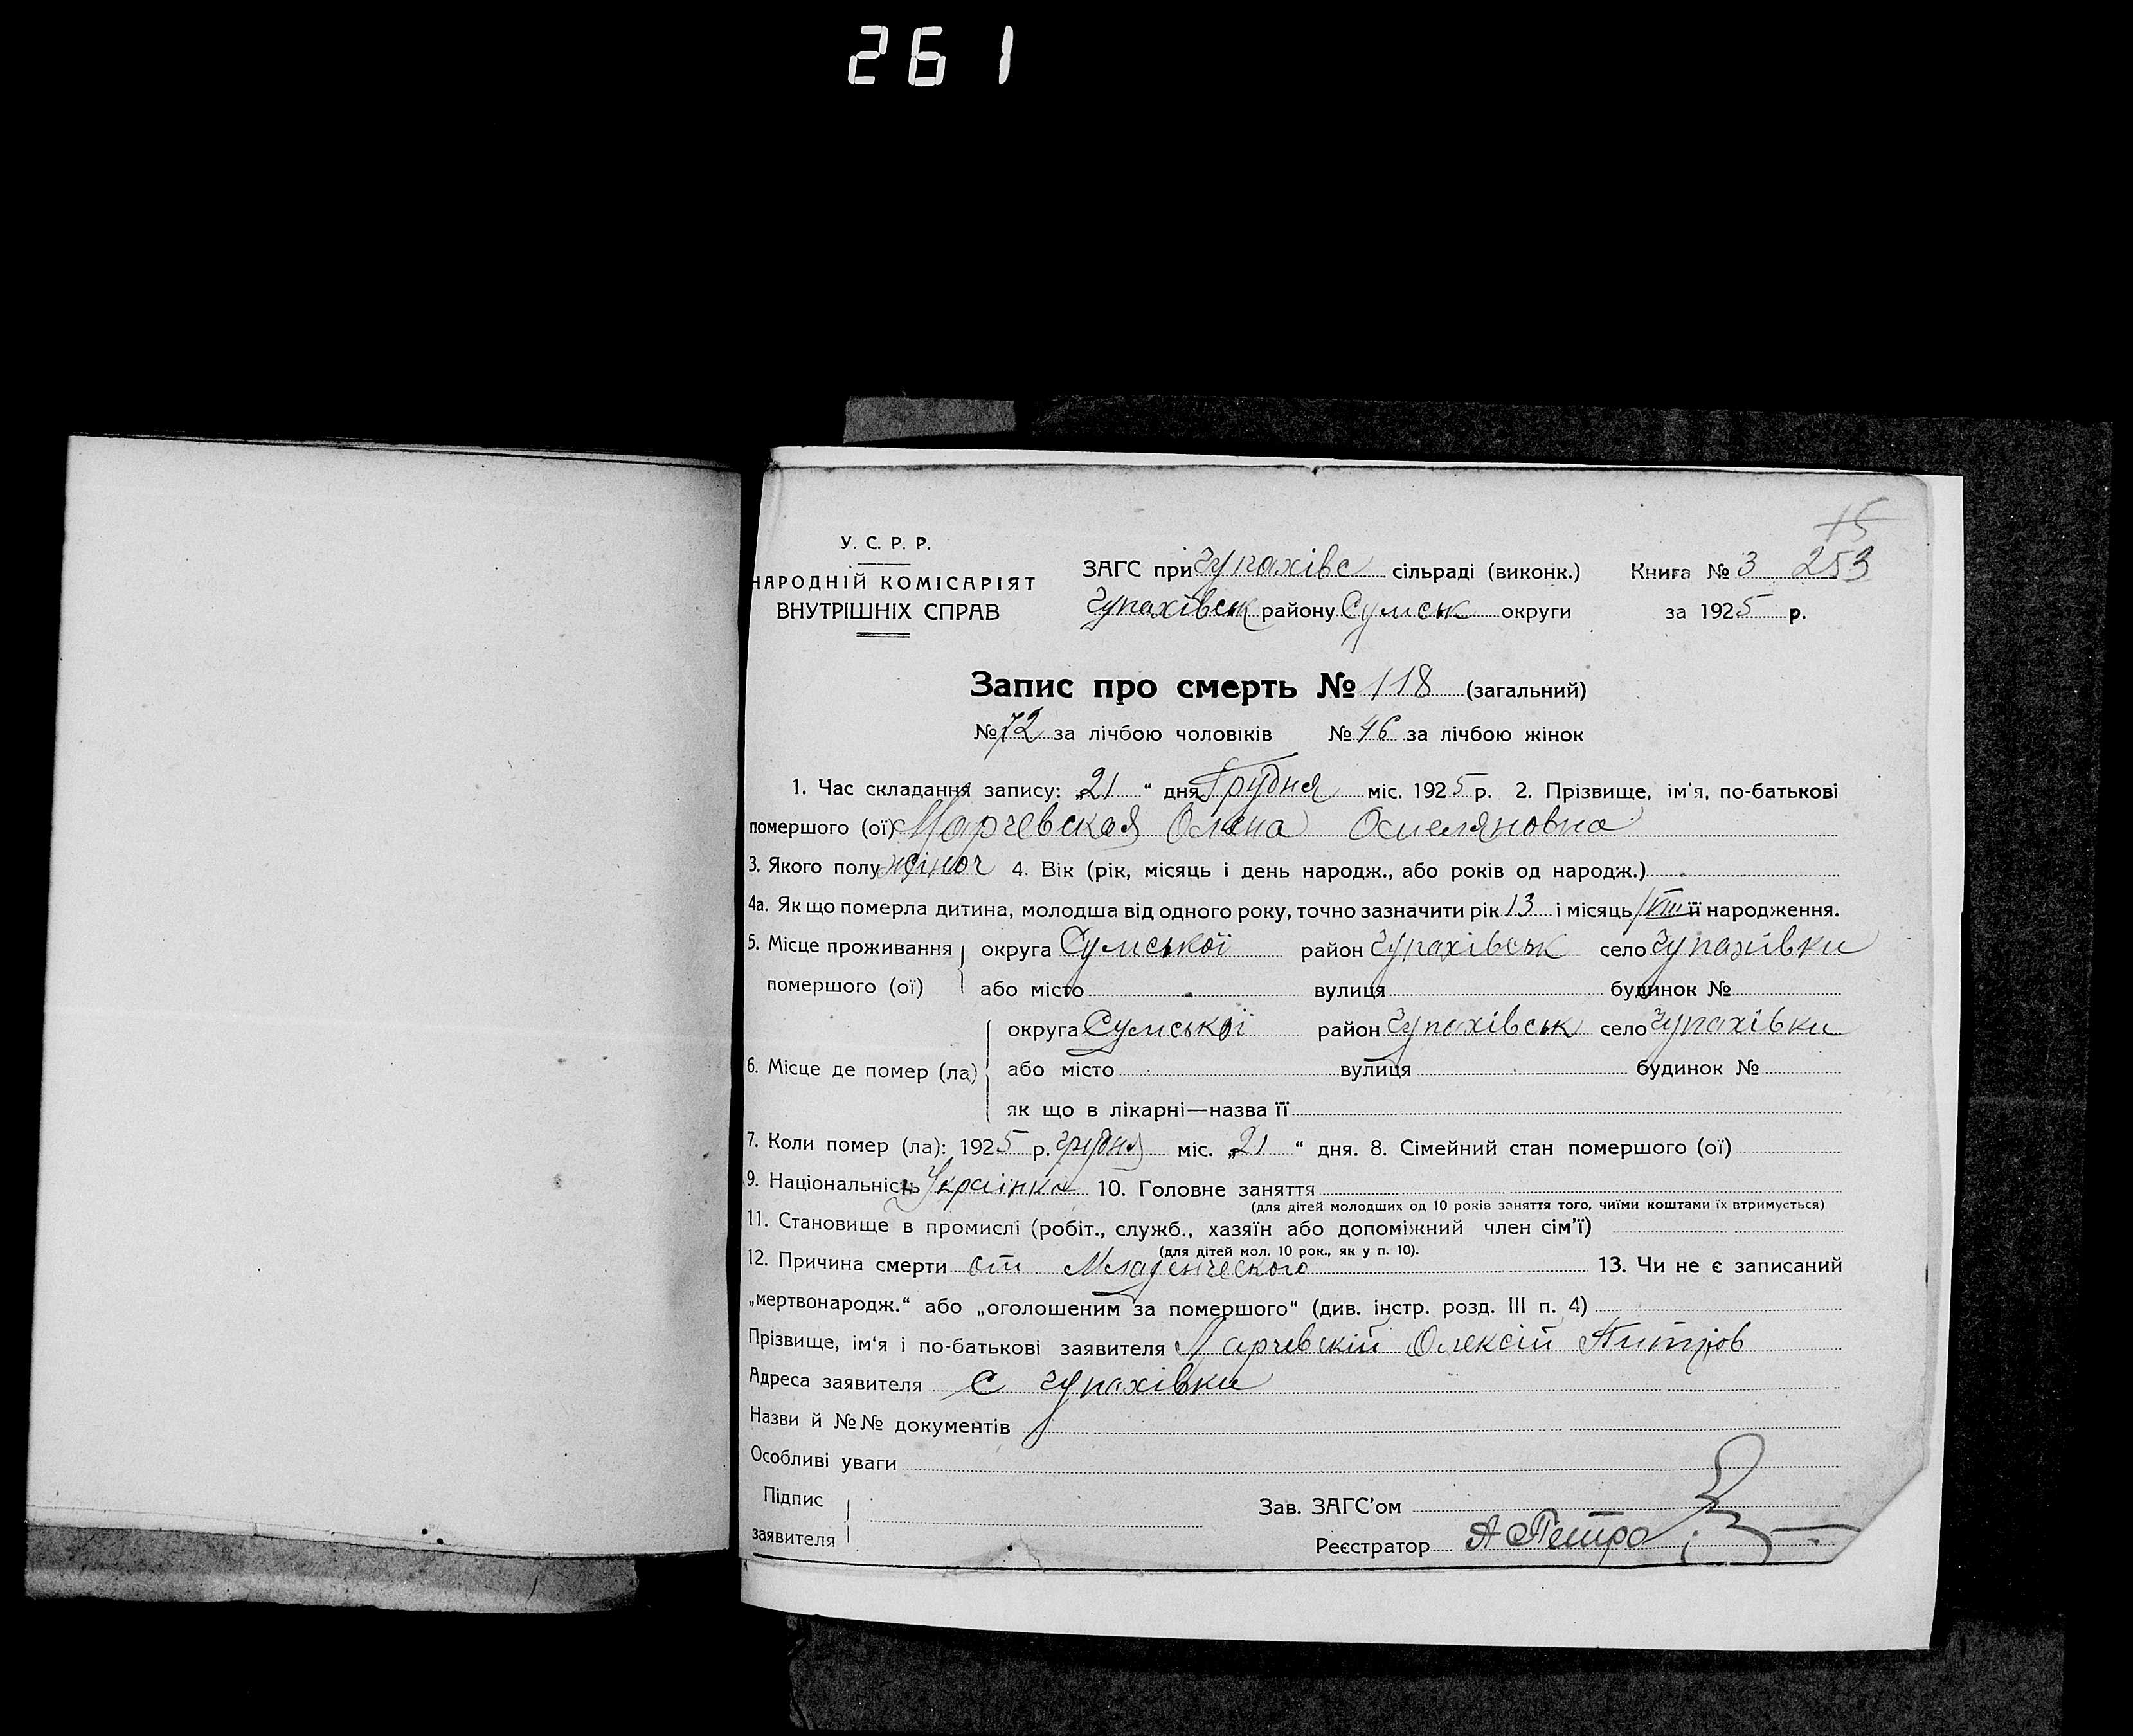 261
15
У. С. Р. Р.
НАРОДНІЙ КОМІСАРІЯТ
ВНУТРІШНІХ СПРАВ
ЗАГС при Чупахівс сільраді (виконк.) Книга № 3 253
Чупахівськ району Сумськ округи за 1925 р.
Запис про смерть № 118 (загальний)
№ 72 за лічбою чоловіків № 46 за лічбою жінок
1. Час складання запису: „21 “ дня Грудня міс. 1925 р. 2. Прізвище, ім'я, по-батькові
помершого (ої) Марчевская Олена Омеляновна
3. Якого полу жіноч 4. Вік (рік, місяць і день народж., або років од народж.)
4а. Як що померла дитина, молодша від одного року, точно зазначити рік 13 і місяць /VIII її народження.
5. Місце проживання округа Сумської район Чупахівськ село Чупахівки
помершого (ої) або місто вулиця будинок №
округа Сумської район Чупахівськ село Чупахівки
6. Місце де помер (ла) або місто вулиця будинок №
як що в лікарні—назва її
7. Коли помер (ла): 1925 р. грудня міс. „21 “ дня. 8. Сімейний стан помершого (ої)
9. Національність Українка 10. Головне заняття
(для дітей молодших од 10 років заняття того, чиїми коштами їх втримується)
11. Становище в промислі (робіт., служб., хазяїн або допоміжний член сім'ї)
(для дітей мол. 10 рок., як у п. 10).
12. Причина смерти от Младенческого 13. Чи не є записаний
„мертвонародж.“ або „оголошеним за помершого“ (див. інстр. розд. III п. 4)
Прізвище, ім'я і по-батькові заявителя Марчевскій Олексій Питров
Адреса заявителя С Чупахівки
Назви й №№ документів
Особливі уваги
Підпис
заявителя
Зав. ЗАГС'ом
Реєстратор А Петро